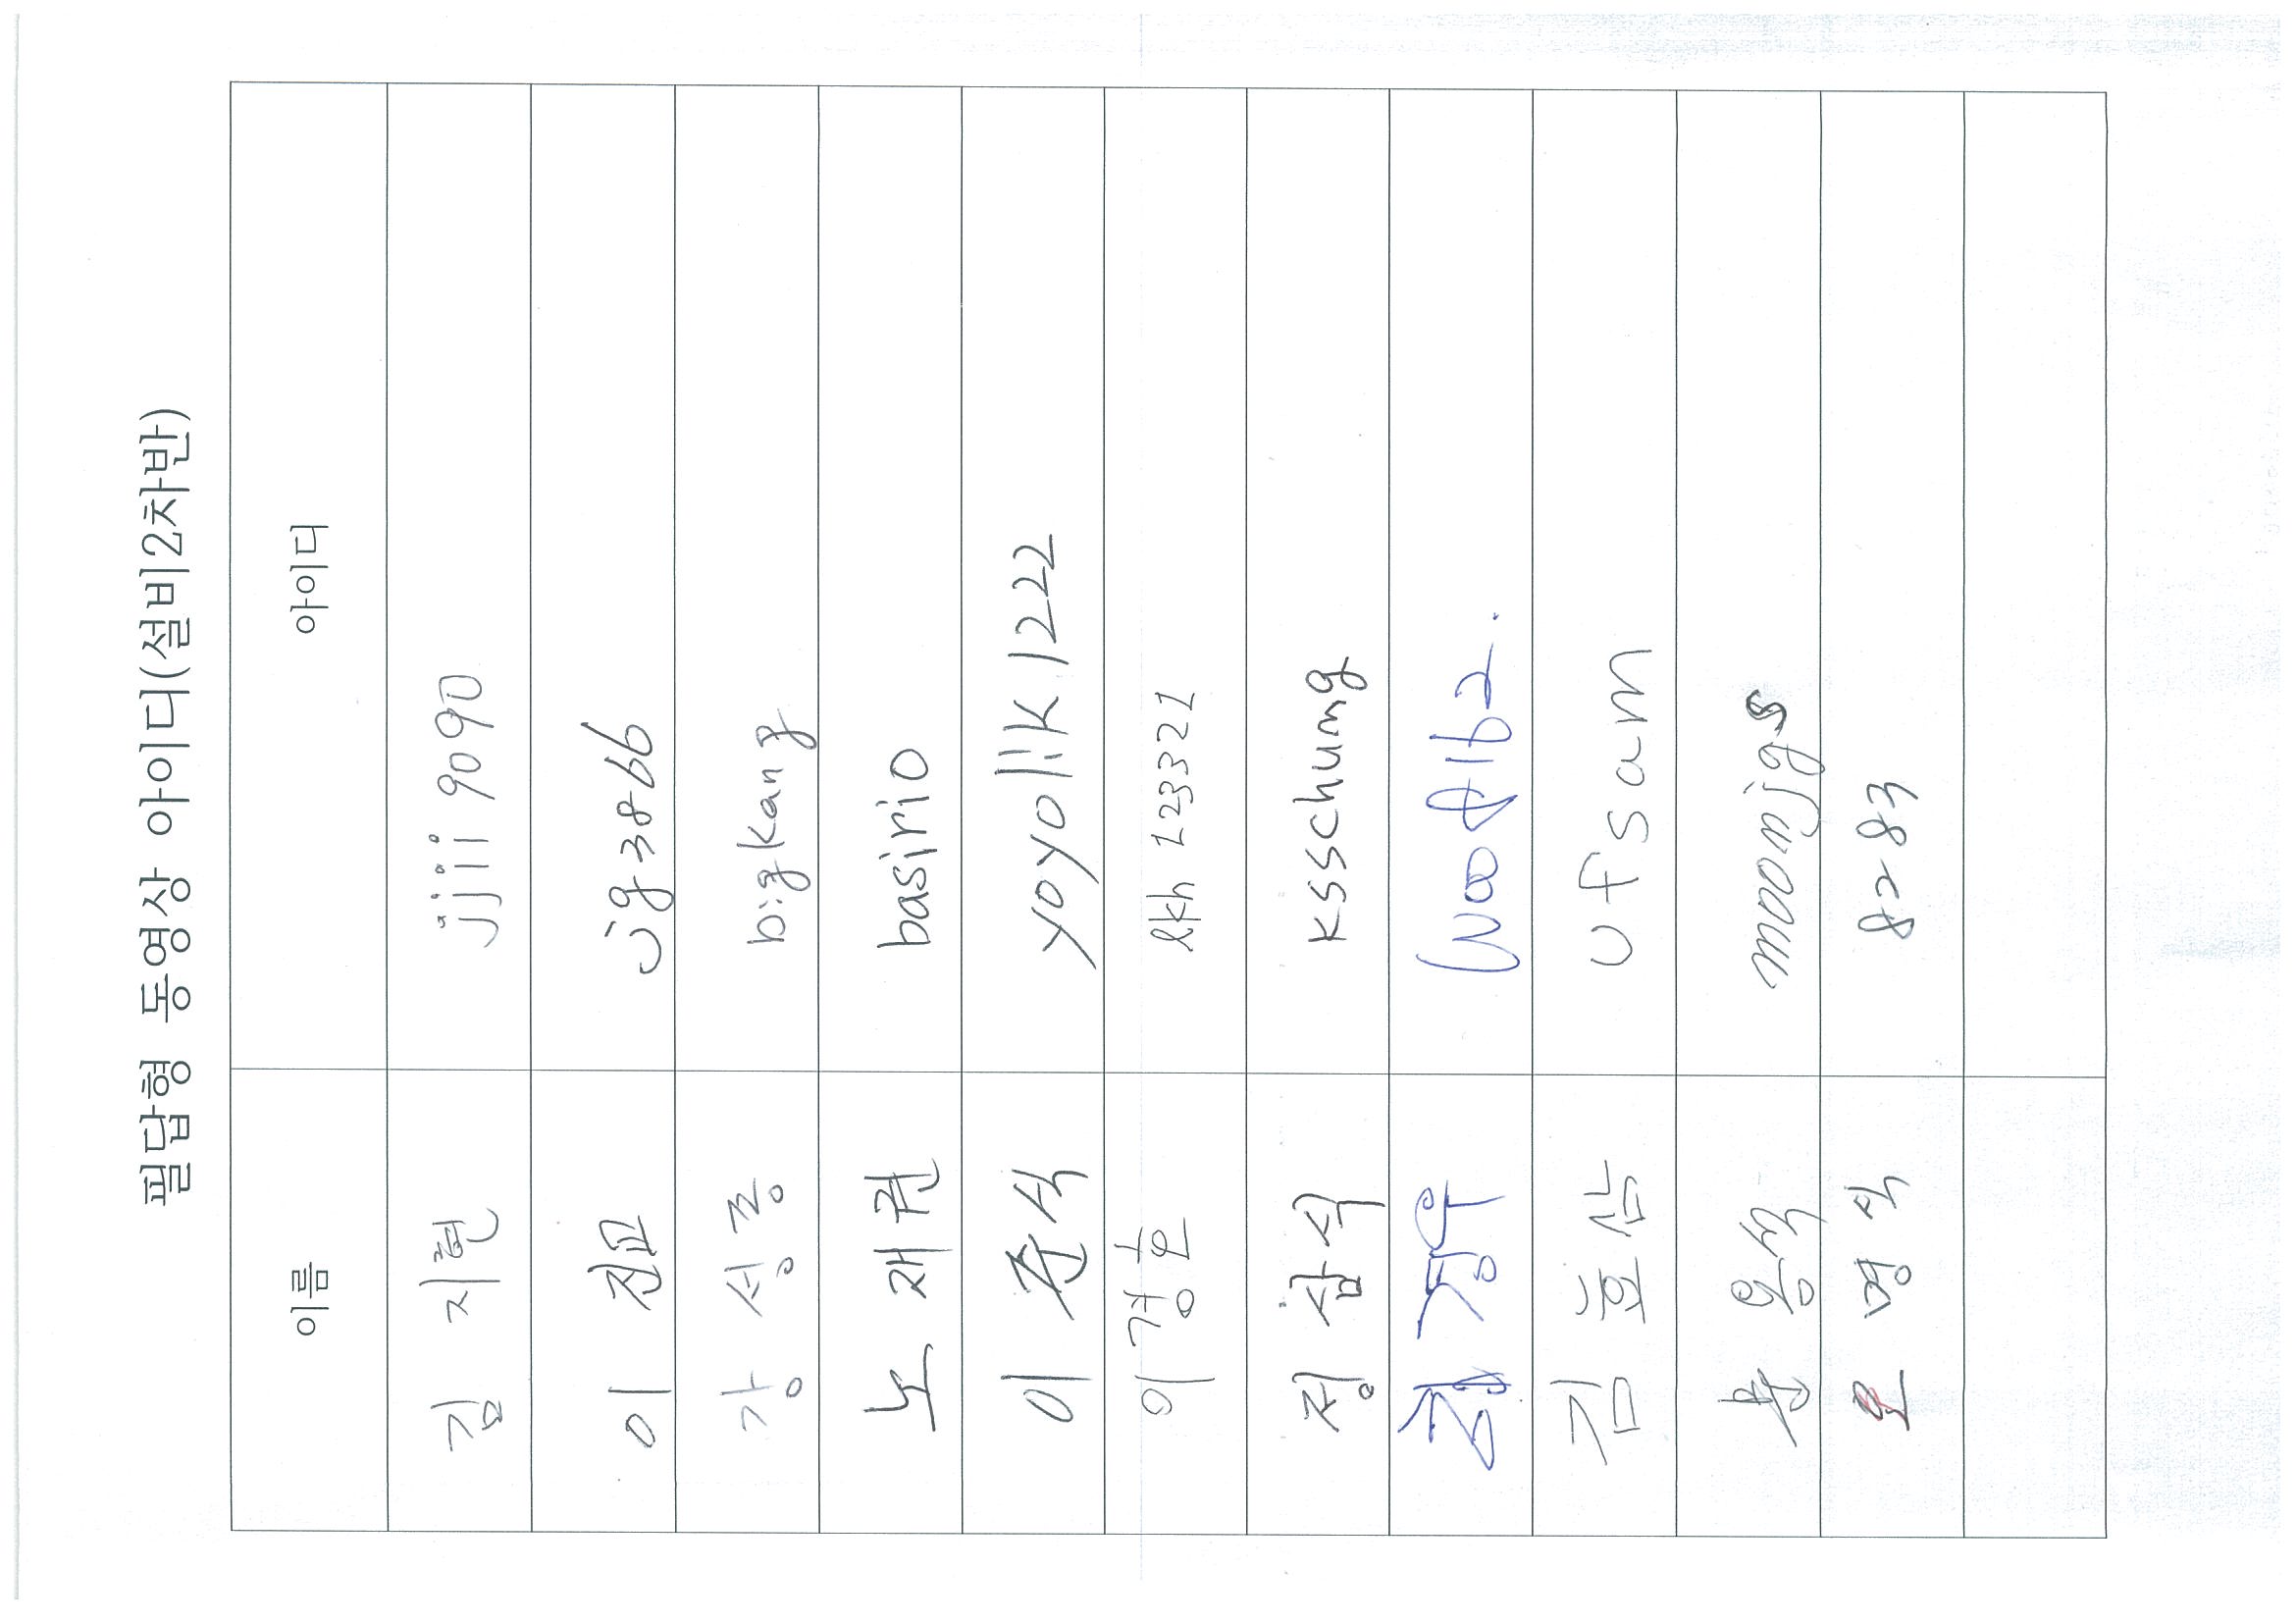 필답형 동영상 아이디(설비2차반)
이름 아이디
김 지현 jjii9090
이 진교 jg3866
강 성중 bigkang
노 재권 basirio
이 준석 yoyollk1222
이경훈 lkh123321
정 삼식 ksschung
경우
김 호삼 ufsam
용석 moonjgs
영석 8283